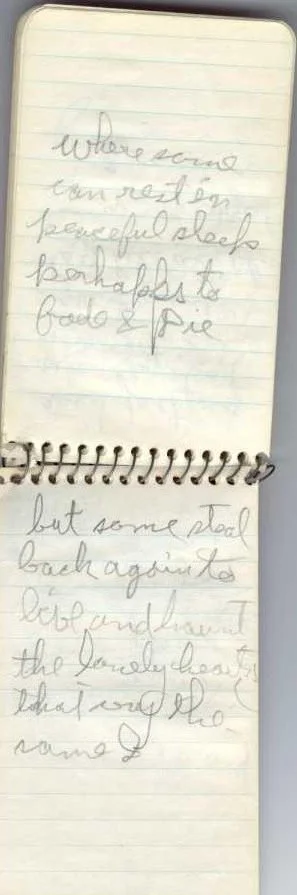 where some
can rest in
peaceful sleep
perhapps to
fade & Die
but some steal
back again to
live and haunt
the lonely hearts
that
the
same